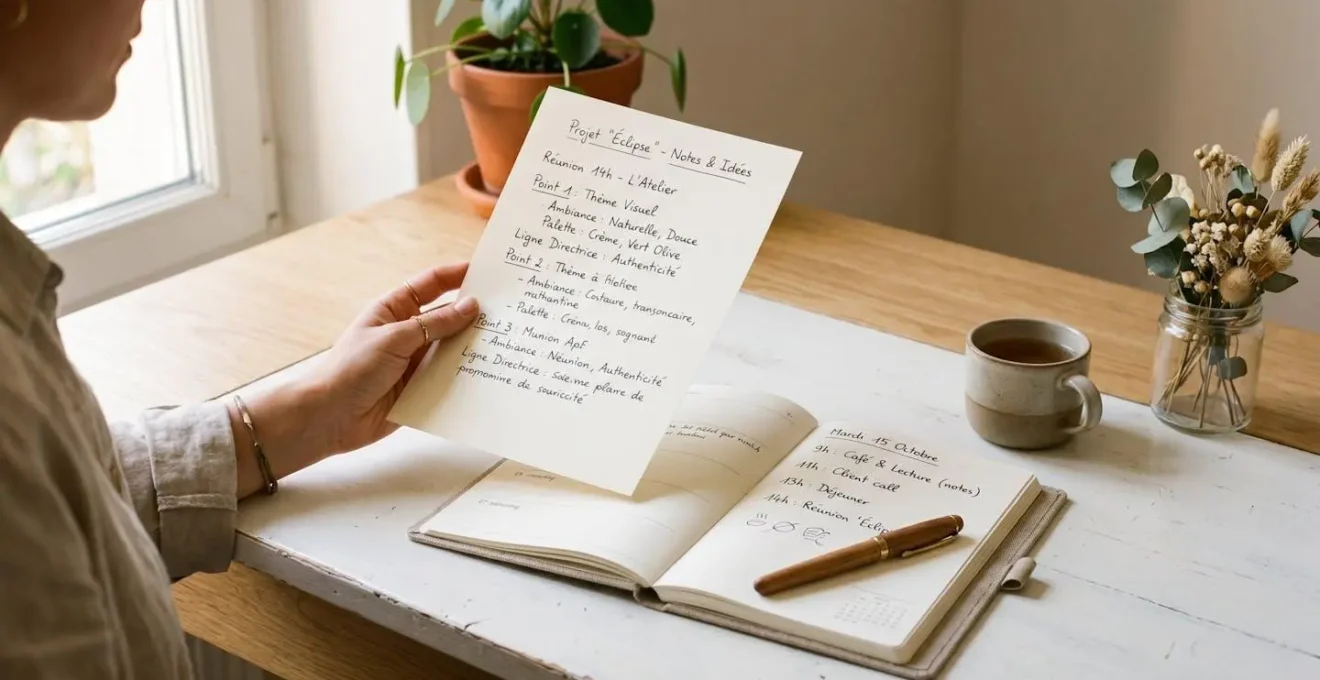 Projet "Éclipse" - Notes & Idées
Réunion 14h - L'Atelier
Point 1 : Thème Visuel
- Ambiance : Naturelle, Douce
Palette : Crème, Vert Olive
Ligne Directrice : Authenticité
Point 2 : Thème à
- Ambiance : Costaure, transoncaire,
- Palette : Crèna, los, sognant
Point 3 : Munion ApF
- Ambiance : Néunion, Authenticité
Ligne Directrice : plare de
de souriccité
Mardi 15 Octobre
9h : Café & Lecture (notes)
11h : Client call
13h : Déjeuner
14h : Réunion 'Éclip